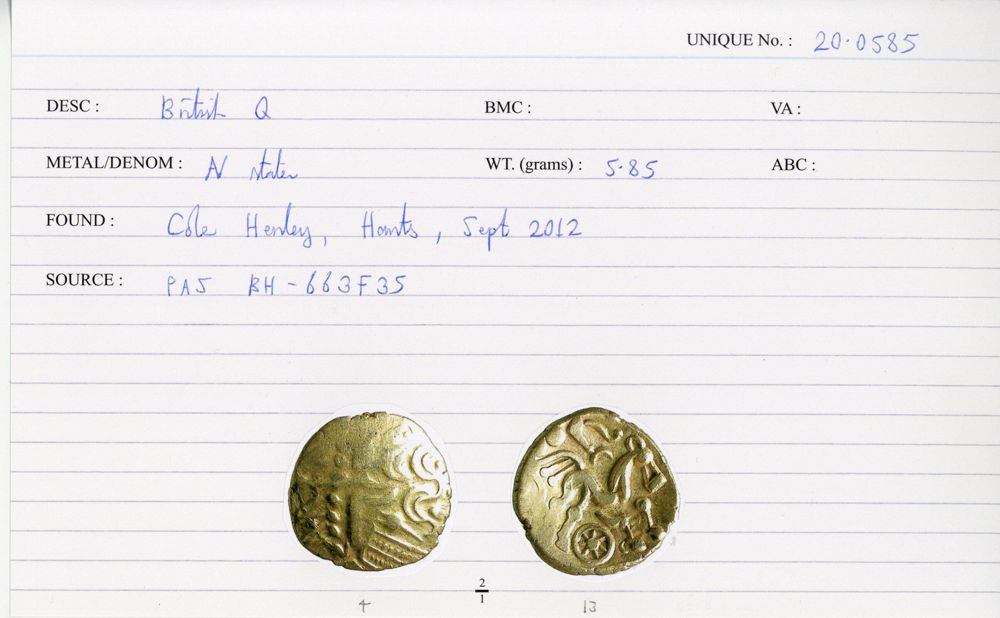 UNIQUE No. : 20·0585
DESC : British Q BMC : VA :
METAL/DENOM : AV stater WT. (grams) : 5·85 ABC :
FOUND : Cole Henley, Hants, Sept 2012
SOURCE : PAS BH-663F35
2
1
4 13